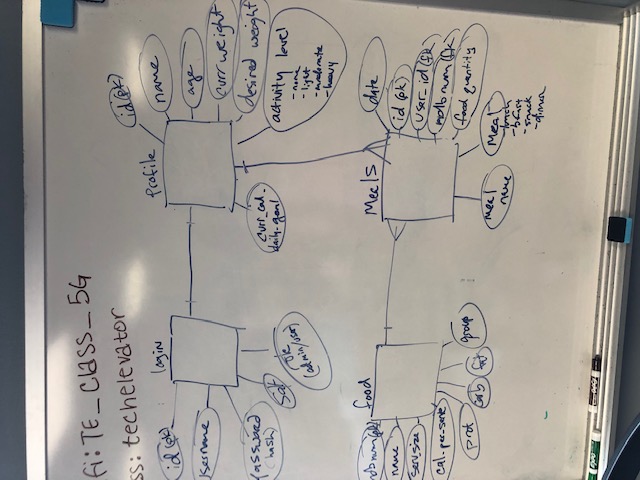 fi: TE_Class_5G
ss: techelevator
login
id (pk)
username
password
hash)
Salt
(admin/user)
Profile
id (pk)
name
age
curr weight
desired weight
curr_cal_
daily-goal
activity level
- none
- light
- moderate
- heavy
food
ndbnum (pk)
name
serv.size
cal.-per-serve
prot
carb
fat
group
Meals
date
id (pk)
user_id (fk)
ndbnum (fk)
food quantity
meal
name
meal
- lunch
- bfast
- snack
- dinner
EXPO
EXPO